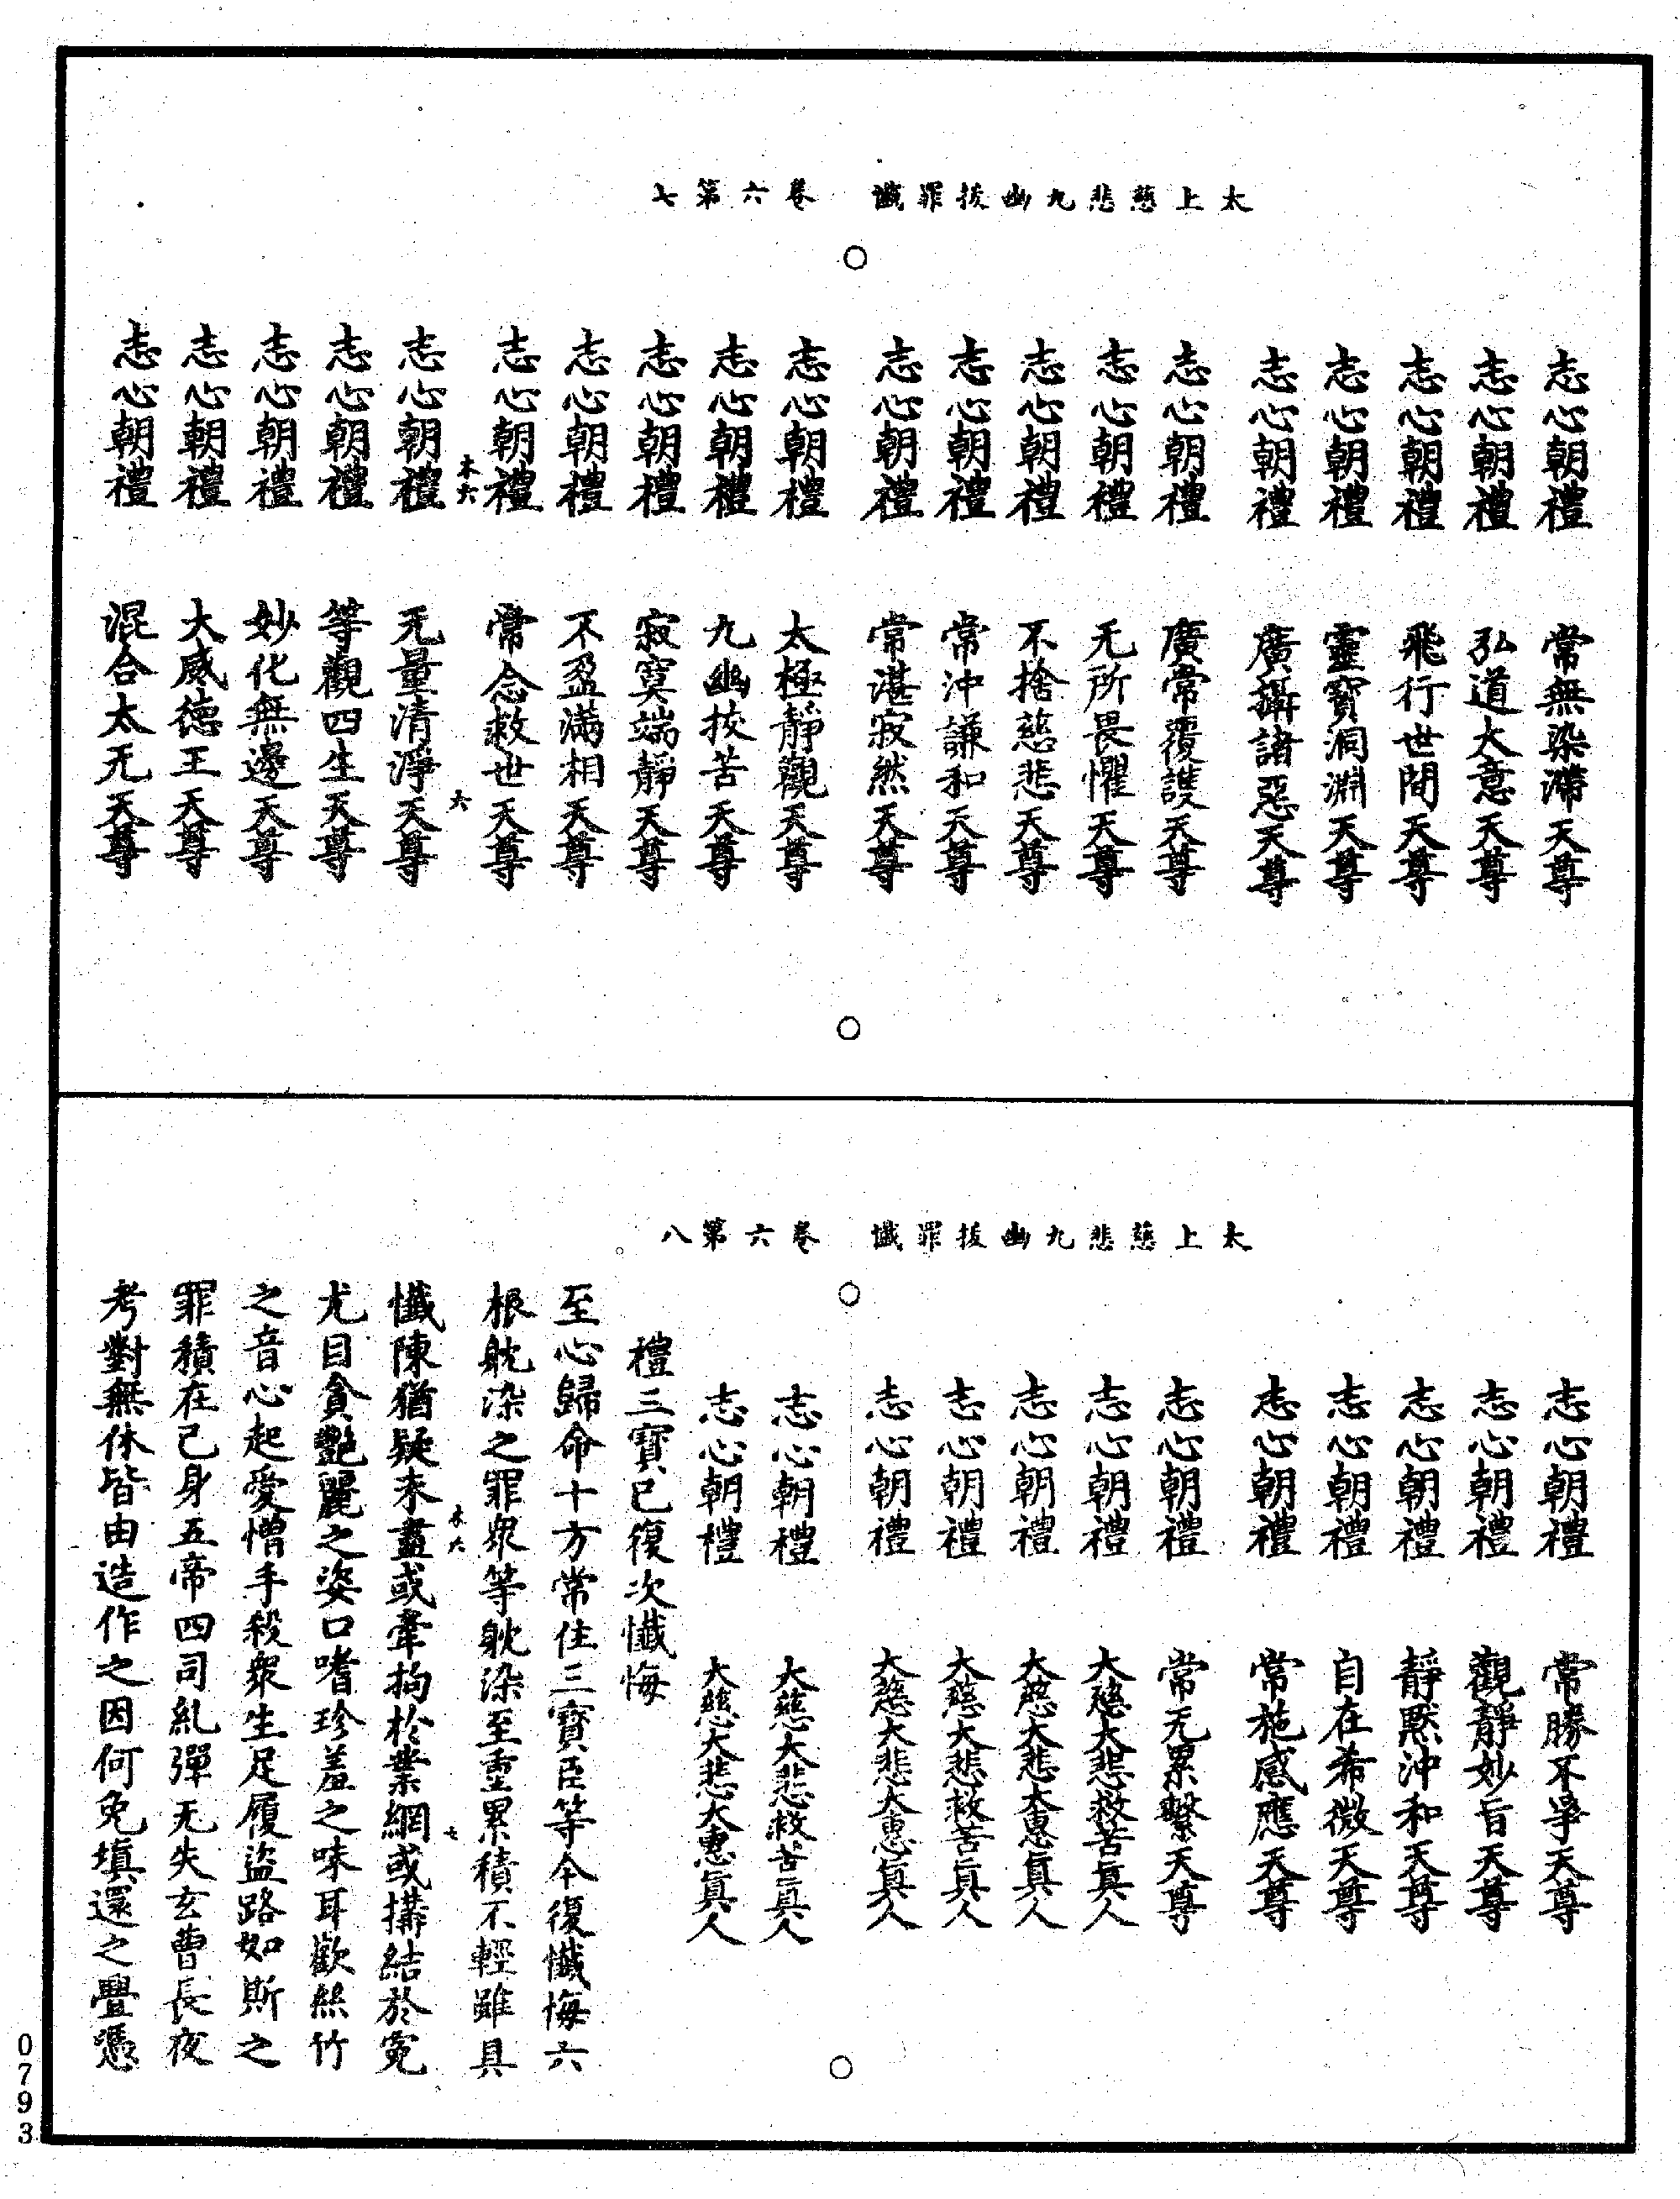 太上慈悲九幽拔罪懺　卷六第七
志心朝禮　常無染滯天尊
志心朝禮　弘道大意天尊
志心朝禮　飛行世間天尊
志心朝禮　靈寶洞淵天尊
志心朝禮　廣攝諸惡天尊
志心朝禮　廣常覆護天尊
志心朝禮　无所畏懼天尊
志心朝禮　不捨慈悲天尊
志心朝禮　常沖謙和天尊
志心朝禮　常湛寂然天尊
志心朝禮　太極靜觀天尊
志心朝禮　九幽拔苦天尊
志心朝禮　寂寞端靜天尊
志心朝禮　不盈滿相天尊
志心朝禮　常念救世天尊
木六　六
志心朝禮　无量清淨天尊
志心朝禮　等觀四生天尊
志心朝禮　妙化無邊天尊
志心朝禮　大威德王天尊
志心朝禮　混合太无天尊
太上慈悲九幽拔罪懺　卷六第八
志心朝禮　常勝不爭天尊
志心朝禮　觀靜妙旨天尊
志心朝禮　靜默沖和天尊
志心朝禮　自在希微天尊
志心朝禮　常施感應天尊
志心朝禮　常无累繫天尊
志心朝禮　大慈大悲救苦真人
志心朝禮　大慈大悲大惠真人
志心朝禮　大慈大悲救苦真人
志心朝禮　大慈大悲大惠真人
志心朝禮　大慈大悲救苦真人
志心朝禮　大慈大悲大惠真人
禮三寶已復次懺悔
至心歸命十方常住三寶臣等今復懺悔六
根躭染之罪眾等躭染至重累積不輕雖具
木六　七
懺陳猶疑未盡或牽拘於業網或搆結於冤
尤目貪艷麗之姿口嗜珍羞之味耳歡絲竹
之音心起愛憎手殺眾生足履盜路如斯之
罪積在己身五帝四司糺彈无失玄曹長夜
考對無休皆由造作之因何免填還之舋憑
0793